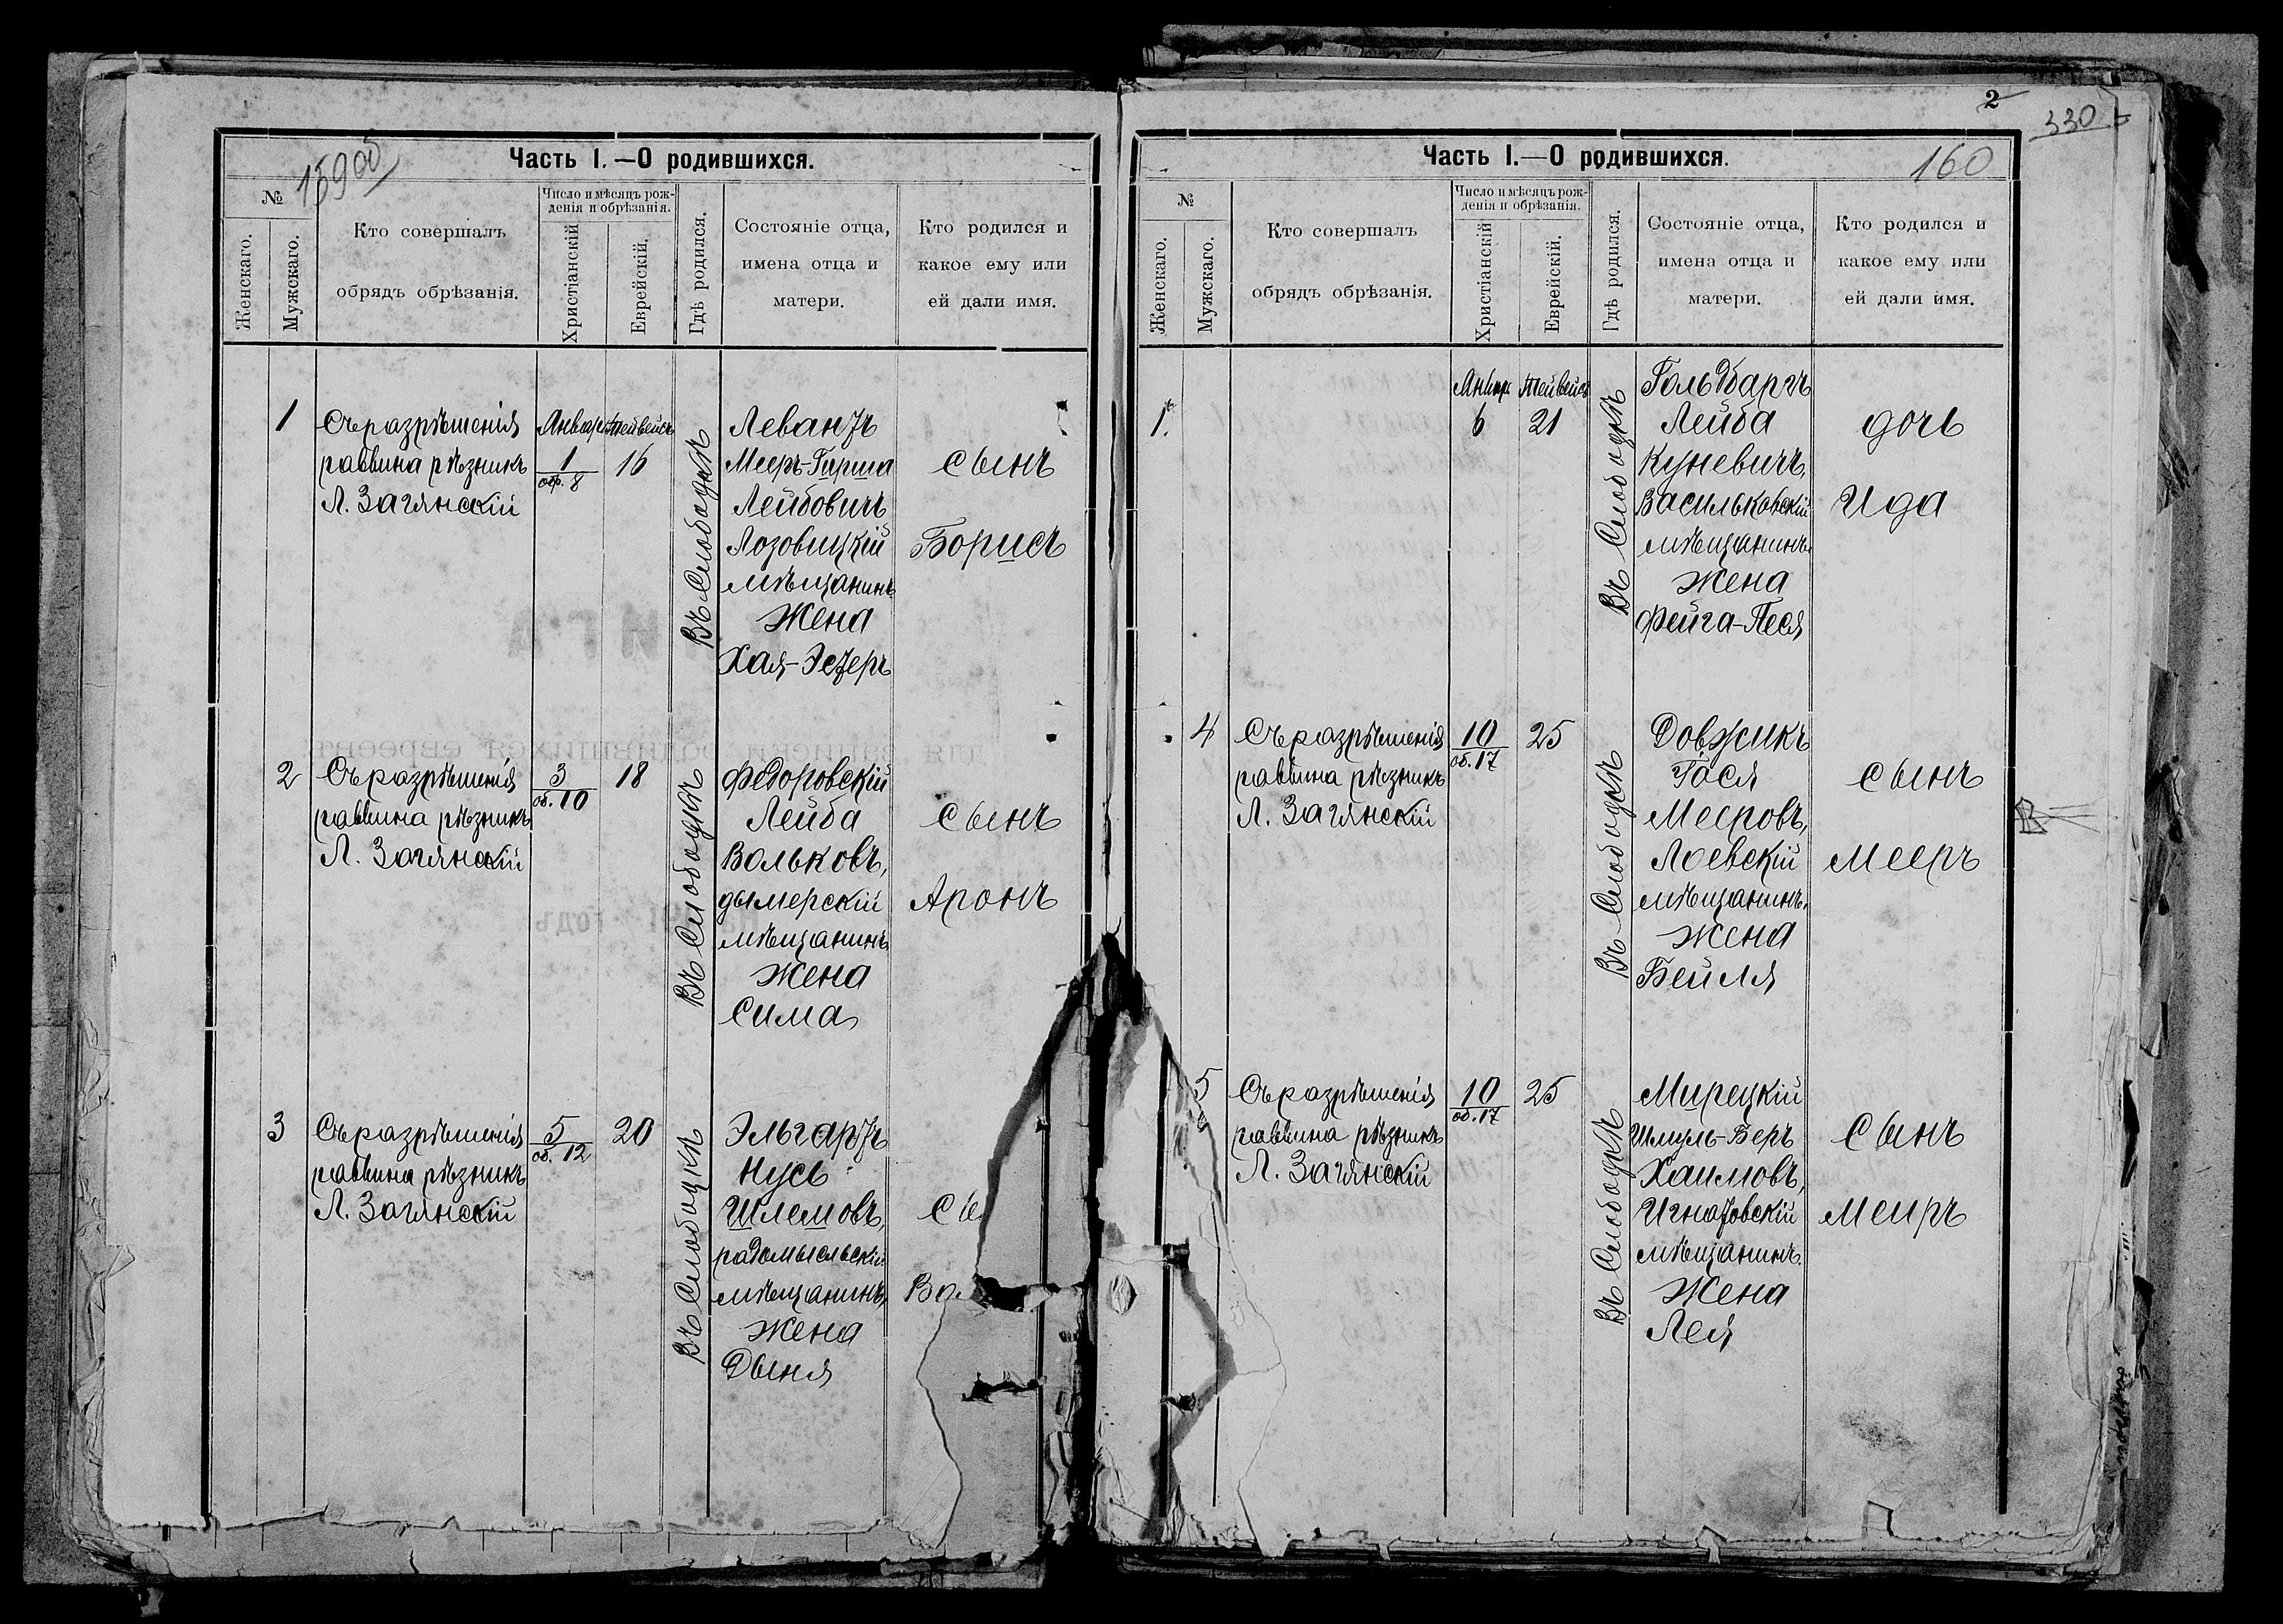 159об
Часть I.—О родившихся.
№
Женскаго.
Мужскаго.
Кто совершалъ
обрядъ обрѣзанія.
Число и мѣсяцъ рож-
денія и обрѣзанія.
Христіанскій
Еврейскій.
Гдѣ родился.
Состояніе отца,
имена отца и
матери.
Кто родился и
какое ему или
ей дали имя.
1
Съ разрѣшенія
раввина рѣзникъ
Л. Загянскій
Январ.
1
обр. 8
Тейвейсъ
16
Въ Слободкѣ
Левантъ
Мееръ-Гирша
Лейбовичъ
Лозовицкій
мѣщанинъ
жена
Хая-Эстеръ
сынъ
Борисъ
2
Съ разрѣшенія
раввина рѣзникъ
Л. Загянскій
3
об. 10
18
Въ Слободкѣ
Федоровскій
Лейба
Вольковъ,
дымерскій
мѣщанинъ
жена
Сима
сынъ
Аронъ
3
Съ разрѣшенія
раввина рѣзникъ
Л. Загянскій
5
об. 12
20
Въ Слободкѣ
Эльгартъ
Нусь
Шлемовъ,
радомысльскій
мѣщанинъ,
жена
Двыня
Сы
Во
2
330
160
Часть I.—О родившихся.
№
Женскаго.
Мужскаго.
Кто совершалъ
обрядъ обрѣзанія.
Число и мѣсяцъ рож-
денія и обрѣзанія.
Христіанскій
Еврейскій.
Гдѣ родился.
Состояніе отца,
имена отца и
матери.
Кто родился и
какое ему или
ей дали имя.
1.
Январ.
6
Тейвейсъ
21
Въ Слободкѣ
Гольдбаргъ
Лейба
Куневичъ,
Васильковскій
мѣщанинъ.
жена
Фейга-Песя
дочь
Ида
4
Съ разрѣшенія
раввина рѣзникъ
Л. Загянскій
10
об. 17
25
Въ Слободкѣ
Довжикъ
Гося
Мееровъ,
Лоевскій
мѣщанинъ.
жена
Бейля
сынъ
Мееръ
5
Съ разрѣшенія
раввина рѣзникъ
Л. Загянскій
10
об. 17
25
Въ Слободкѣ
Мирецкій
Шмуль-Беръ
Хаимовъ,
Игнатовскій
мѣщанинъ.
жена
Лея
сынъ
Меиръ